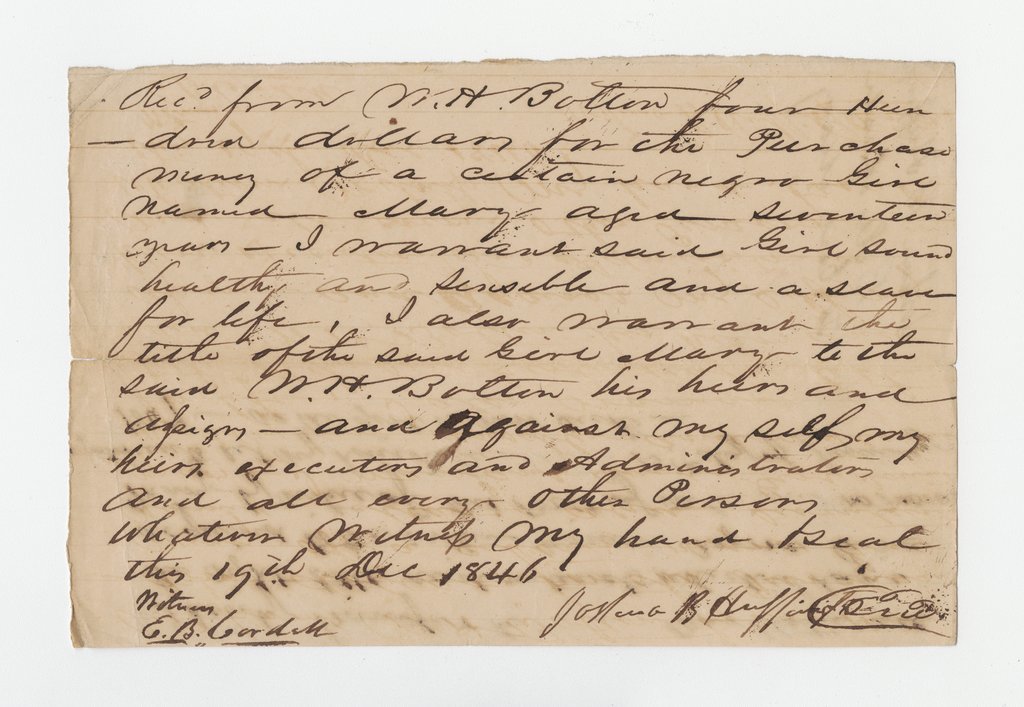 Rec.d from W. H. Bolton four Hun
- dred dollars for the Purchase
money of a certain negro Girl
named Mary aged seventeen
years - I warrant said Girl sound
healthy and sensible and a slave
for life, I also warrant the
title of the said Girl Mary to the
said W. H. Bolton his heirs and
assigns - and against my self my
heirs executors and Administrators
and all every other Persons
whatever Witness my hand & seal
this 19th Dec 1846
Joshua B Seal
Witness
E. B. Cordell